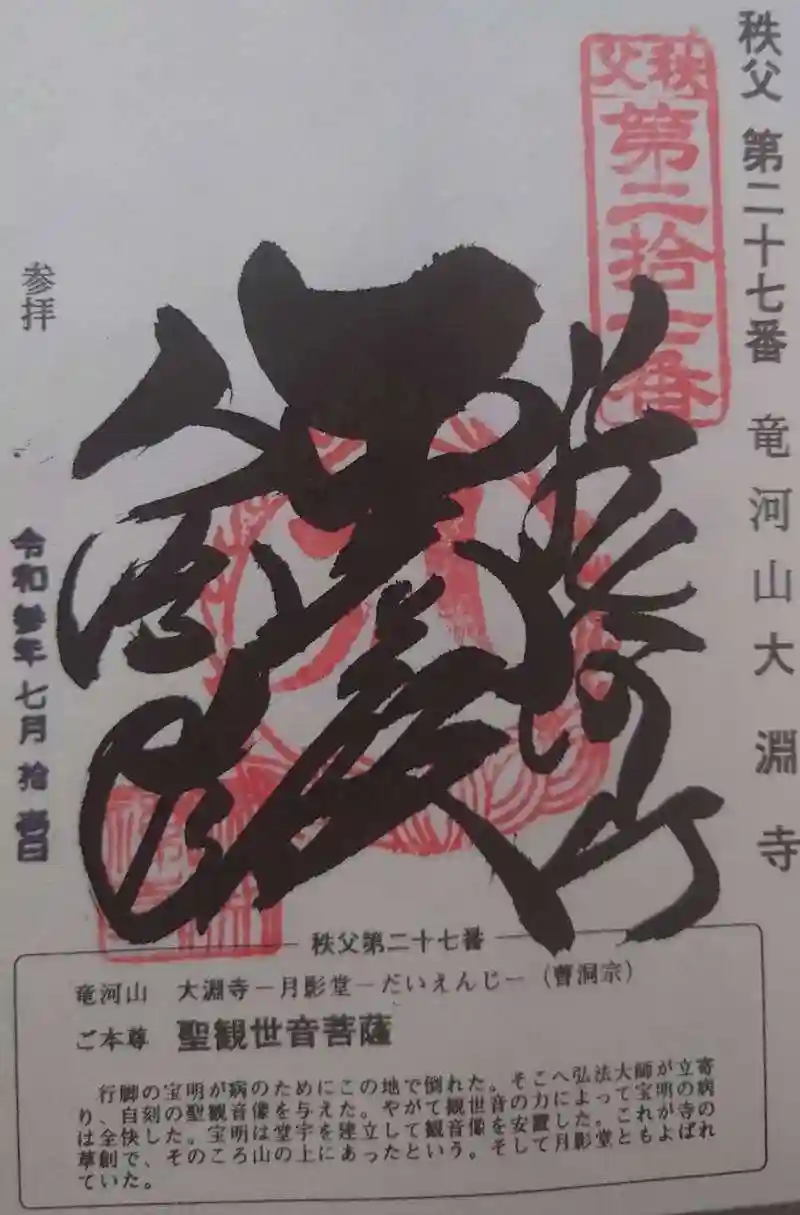 秩父 第二十七番 竜河山大淵寺
秩父
第二拾七番
参拝
令和参年七月拾壱日
秩父第二十七番
竜河山 大淵寺－月影堂－だいえんじ－（曹洞宗）
ご本尊 聖観世音菩薩
行脚の宝明が病のためにこの地で倒れた。そこへ弘法大師が立寄
り、自刻の聖観音像を与えた。やがて観世音の力によって宝明の病
は全快した。宝明は堂宇を建立して観音像を安置した。これが寺の
草創で、そのころ山の上にあったという。そして月影堂ともよばれ
ていた。